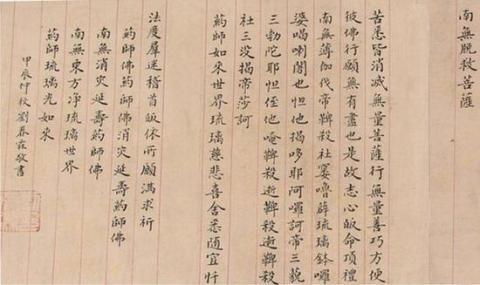 南無脫救菩薩
苦悉皆消滅無量菩薩行無量善巧方便
彼佛行願無有盡也是故志心皈命頂禮
南無薄伽伐帝鞞殺社窶嚕薜琉璃鉢囉
婆喝喇闍也怛他揭哆耶阿囉訶帝三藐
三勃陀耶怛侄他唵鞞殺逝鞞殺逝鞞殺
社三没揭帝莎訶
藥師如來世界琉璃慈悲喜舍悉隨宜忏
法度羣迷稽首皈依所願滿求祈
藥師佛藥師佛消灾延壽藥師佛
南無消灾延壽藥師佛
南無東方净琉璃世界
藥師琉璃光如來
甲辰仲秋劉春霖敬書